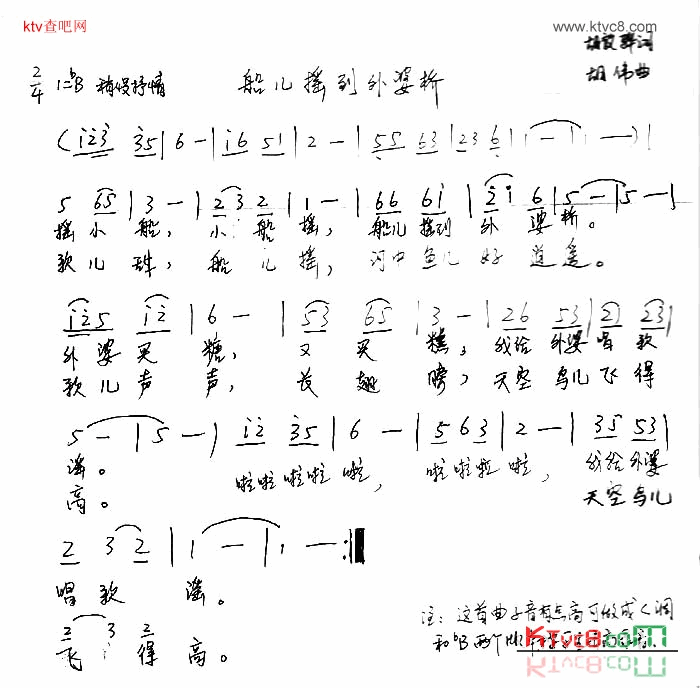 ktv查吧网
www.ktyc8.com
胡 词
2/4 1=bB 稍慢抒情 船儿摇到外婆桥
胡伟曲
(i23 35|6 -|i6 51|2 -|55 63|23 6|1 -|1 -)|
5 65|3 -|2 3 2|1 -|66 6i|2i 6|5 -|5 -|
摇小船,小船摇,船儿摇到外婆桥。
歌儿珠,船儿摇,河中鱼儿好逍遥。
i25 i2|6 -|53 65|3 -|26 53|21 23|
外婆买糖,又买糕,我给外婆唱歌
歌儿声声,长翅膀,天空鸟儿飞得
5 -|5 -)i2 35|6 -|5 63|2 -|35 53|
谣。啦啦啦啦啦,啦啦啦啦,我给外婆
高。天空鸟儿
2 32|1 -|1 -:||
唱歌谣。
2 3 2
飞得高。
注:这首曲子音有点高可做成C调
和bB两个
Ktvc8.com